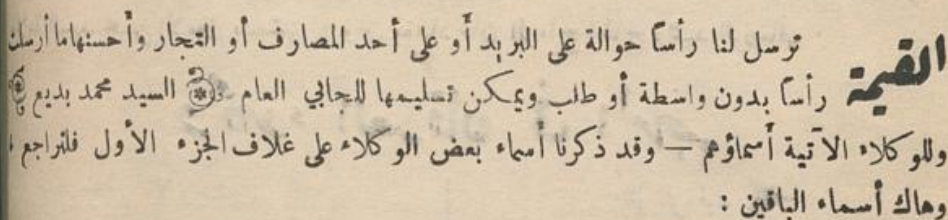 القيمة ترسل لنا رأسًا حوالة على البريد أو على أحد المصارف أو التجار وأحسنها ما أرسلت
رأسًا بدون واسطة أو طلب ويمكن تسليمها للجابي العام السيد محمد بديع
وللوكلاء الآتية أسماؤهم — وقد ذكرنا أسماء بعض الوكلاء على غلاف الجزء الأول فلتراجع
وهاك أسماء الباقين :